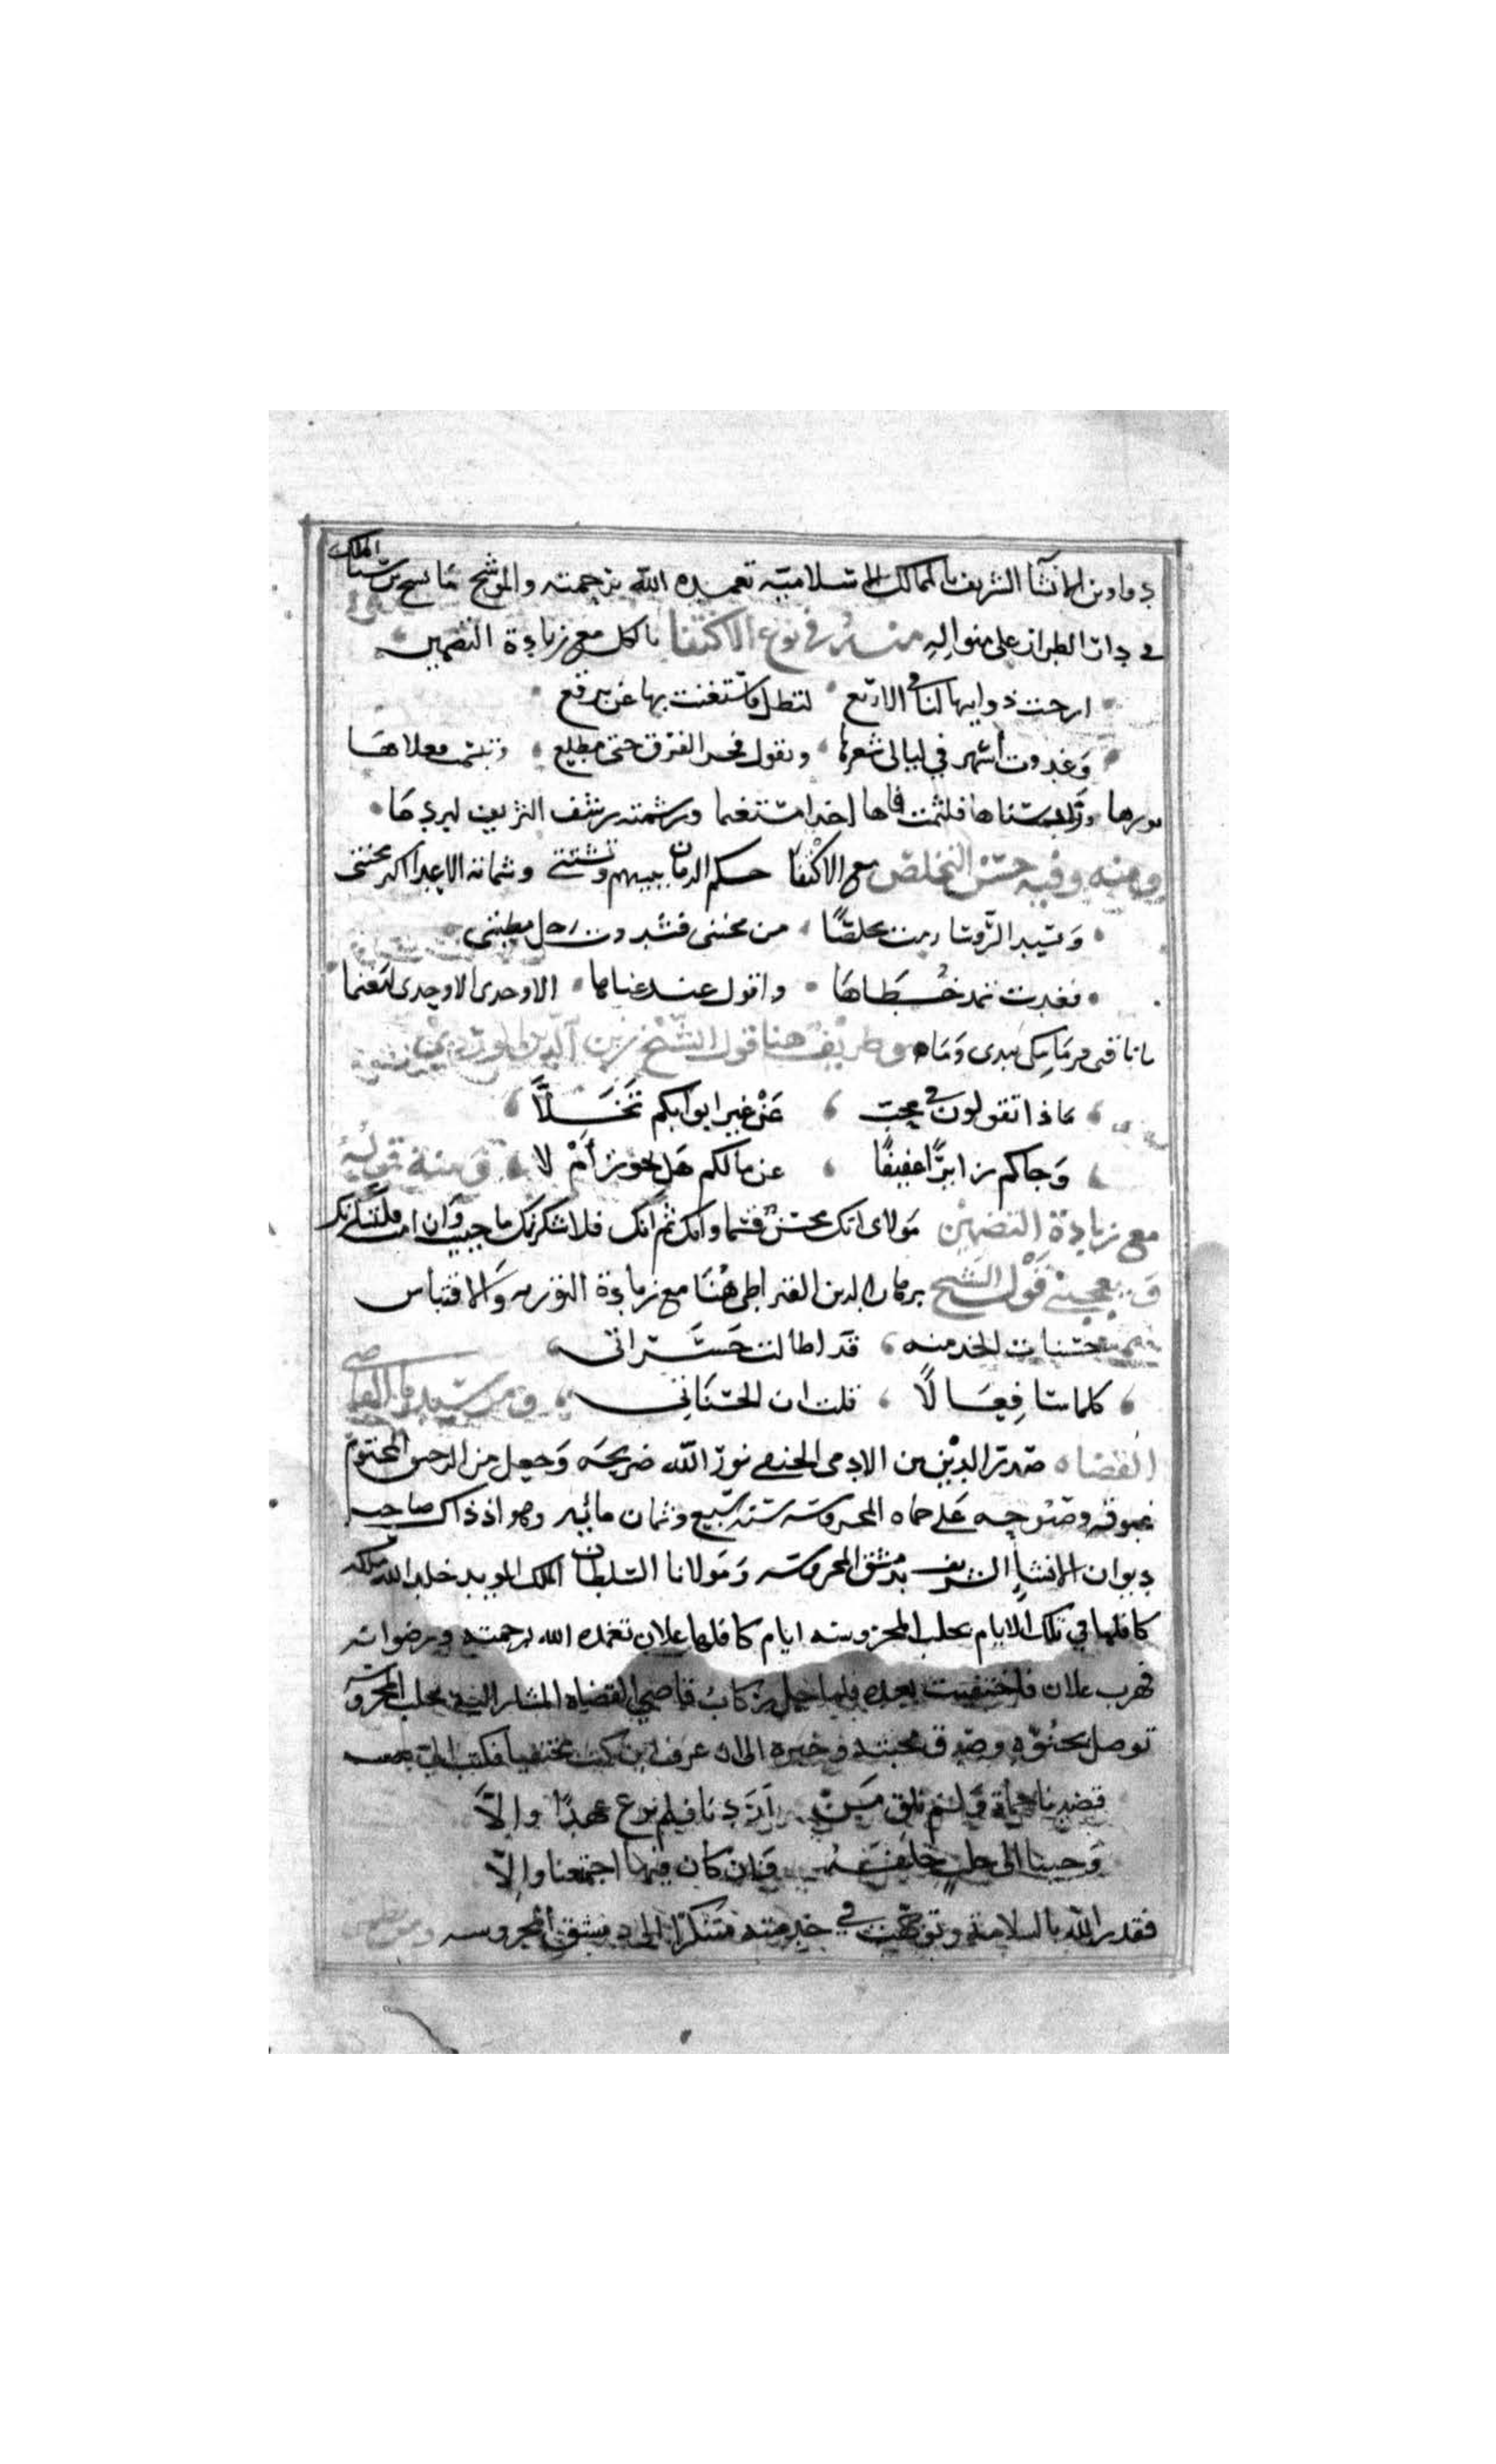 دواوين الانشآ الشريف بالممالك الاسلامية تغمده الله برحمته والموشح ما نسج بن سنا الملك
في دار الطراز على منواله منه في نوع الاكتفا بالكل مع زيادة التضمين
ارخت ذوايبها لنا في الاربع لتطل واستغنت بها عن برقع
وغدوت أسهر في ليالى شعرها ونقول فجر الفرق حتى مطلع
فلثمت فاها
ومنه وفيه حسن التخلص مع الاكتفا حكم الزمان ببينهم وتشتتى وشماتة الاعدا اكبر محنتى
وسيد الروسا رمت مخلصا من محنتى فشددت رحل مطيتى
فغدت تمد خطاها واقول عند عناها الاوحدى الاوحدى لتغنما
يا ناقتى وظريف هنا قول الشيخ زين الدين بن الوردى
ماذا تقولون في محب عن غير ابوابكم تخلا
وجاكم زايرا عفيفا عن مالكم هل يجوز أم لا ومنه قوله
مع زيادة التضمين مولاى انك محسن قسما وانك ثم انك فلاشكرنك ما حييت وان امت فلتشكرنك
ويعجبنى قول الشيخ برهان الدين القيراطى هنا مع زيادة التورية والاقتباس
حسنات الخد منه قد اطالت حسراتى
كلما سا فعالا قلت ان الحسنات ومن سيدنا قاضى
القضاه صدر الدين بن الادمى الحنفى نور الله ضريحه وجعل من الرحيق المختوم
غبوقه وصبوحه على حماه المحروسة سنة سبع وثمان مائيه وهو اذ ذاك صاحب
ديوان الانشآ الشريف بدمشق المحروسة ومولانا السلطان الملك المويد خلد الله ملكه
كافلها في تلك الايام بحلب المحروسة ايام كافلها علان تغمده الله برحمته ورضوانه
فهرب علان فاختفيت بعده فلما حل ركاب قاضى القضاه المشار اليه بحلب المحروسة
توصل بحنوه وصدق محبته وخبره الى ان عرف اين كنت مختفيا فكتب الى
قصدنا حماة ولم نلق من اردنا فلم نرع عهدا والا
وجينا الى حلب خلفه فان كان فيها اجتمعنا والا
فقدر الله بالسلامة وتوجهت في خدمته متنكرا الى دمشق المحروسه